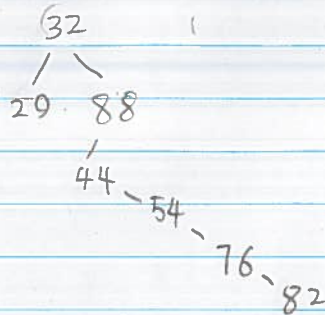 32
29 88
44
54
76
82